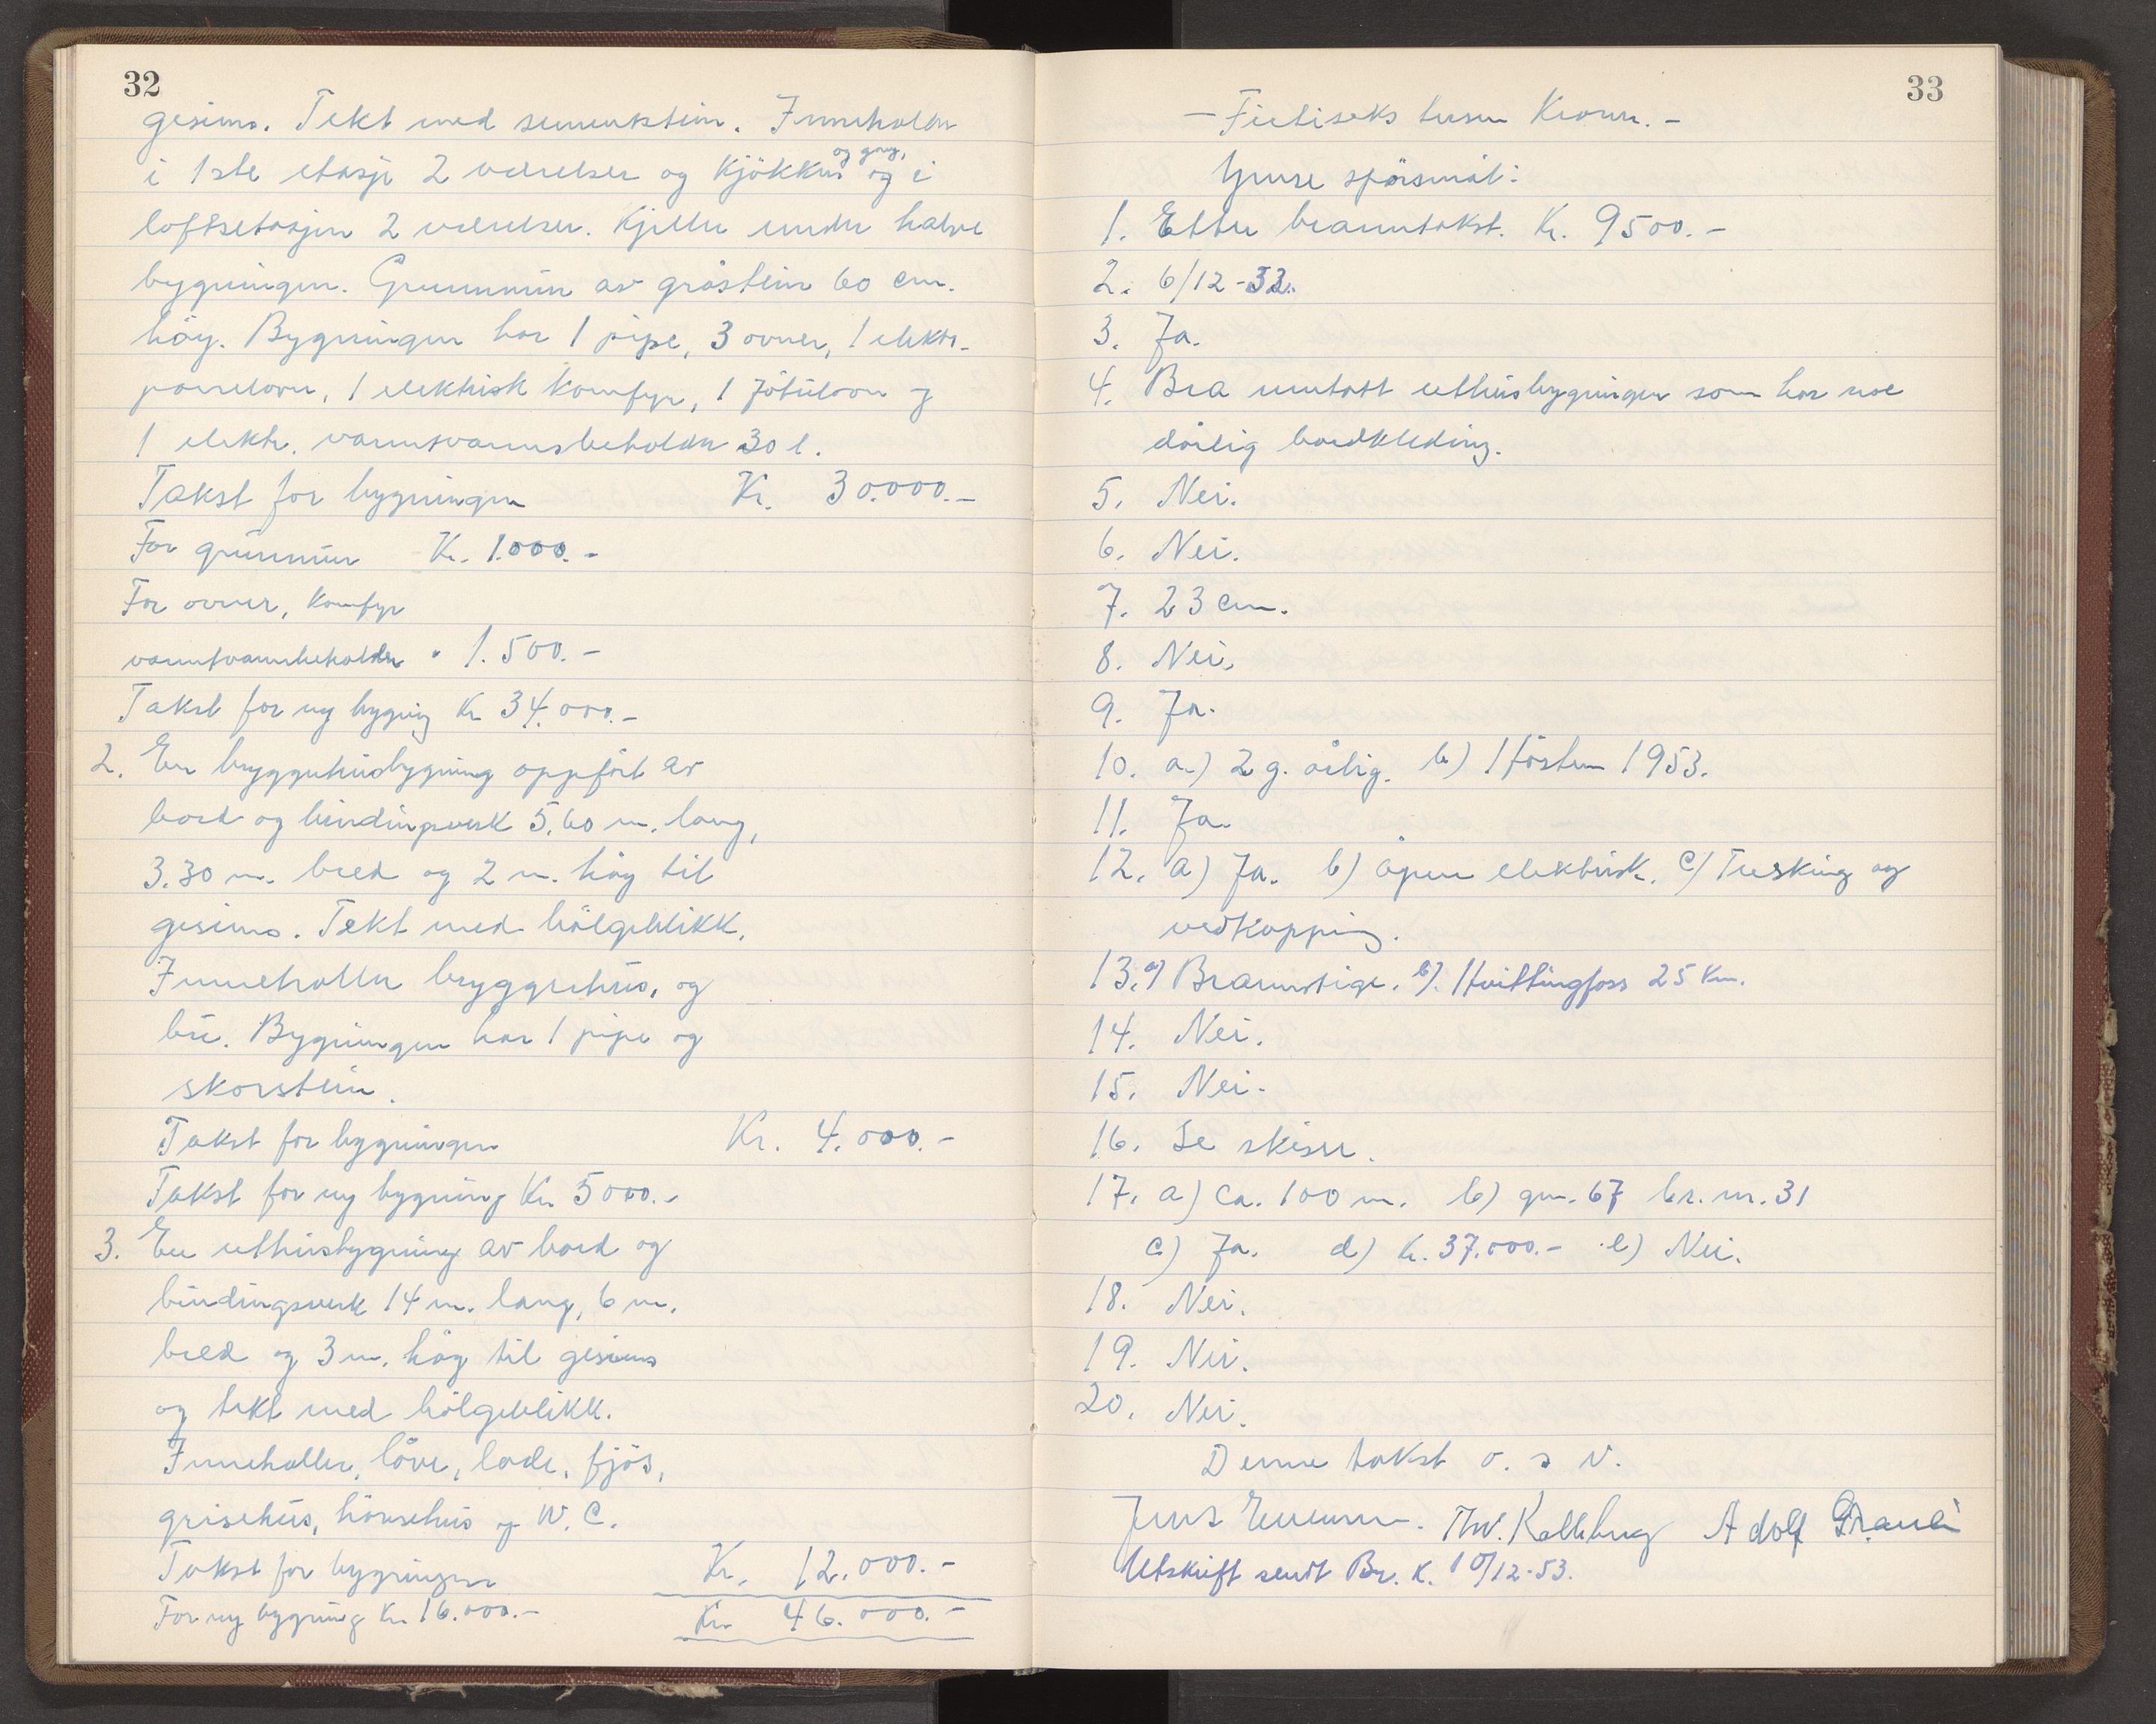 32
gesims. Tekt med sementstein. Inneholder
i 1ste etasje 2 værelser og kjøkken og gang, og i
loftsetasjen 2 værelser. Kjeller under halve
bygningen. Grunnmur av gråstein 60 cm.
høy. Bygningen har 1 pipe, 3 ovner, 1 elektr.
panelovn, 1 elektrisk komfyr, 1 Jøtulovn og
1 elektr. varmtvannsbeholder 30 l.
Takst for bygningen Kr. 30.000.-
For grunnmur Kr. 1.000.-
For ovner, komfyr
varmtvannbeholder " 1.500.-
Takst for ny bygning Kr 34.000.-
2. En bryggehusbygning oppført av
bord og bindingsverk 5.60 m. lang,
3.30 m. bred og 2 m. høy til
gesims. Tekt med bølgeblikk.
Inneholder bryggehus, og
bu. Bygningen har 1 pipe og
skorstein.
Takst for bygningen Kr. 4.000.-
Takst for ny bygning Kr. 5000.-
3. En uthusbygning av bord og
bindingsverk 14 m. lang, 6 m.
bred og 3 m. høg til gesims
og tekt med bølgeblikk.
Inneholder, låve, lade, fjøs,
grisehus, hønsehus og W.C.
Takst for bygningen Kr. 12.000.-
For ny bygning Kr 16.000.- Kr. 46.000.-
33
- Førtiseks tusen Kroner. -
Ymse spørsmål:
1. Etter branntakst. Kr. 9500.-
2. 6/12-32.
3. Ja.
4. Bra unntatt uthusbygningen som har noe
dårlig bordkleding.
5. Nei.
6. Nei.
7. 23 cm.
8. Nei.
9. Ja.
10. a.) 2 g. årlig. b) Høsten 1953.
11. Ja.
12. a) Ja. b) åpen elektrisk. c) Tresking og
vedkapping.
13. a) Brannstige. b). Hvittingfoss 25 km.
14. Nei.
15. Nei.
16. Se skisse.
17. a) ca. 100 m. b) gnr. 67 br. nr. 31
c) Ja. d) Kr. 37.000.- e) Nei.
18. Nei.
19. Nei.
20. Nei.
Denne takst o. s v.
Jens Thv. Adolf
Utskrift sendt Br. K. 10/12-53.